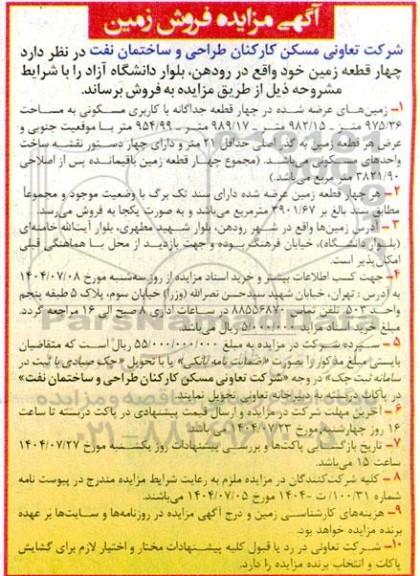 آگهی مزایده فروش زمین
شرکت تعاونی مسکن کارکنان طراحی و ساختمان نفت در نظر دارد
چهار قطعه زمین خود واقع در رودهن، بلوار دانشگاه آزاد را با شرایط
مشروحه ذیل از طریق مزایده به فروش برساند.
۱- زمین‌های عرضه شده در چهار قطعه جداگانه با کاربری مسکونی به مساحت
۹۷۵/۳۶ متر - ۹۸۲/۱۵ متر - ۹۸۹/۱۷ متر - ۹۵۴/۹۹ متر با موقعیت جنوبی و
عرض هر قطعه زمین به گذر اصلی حداقل ۲۱ متر و دارای چهار دستور نقشه ساخت
واحدهای مسکونی می‌باشد. (مجموع چهار قطعه زمین باقیمانده پس از اصلاحی
۳۸۲۱/۹۰ متر مربع می‌باشد.)
۲- هر چهار قطعه زمین عرضه شده دارای سند تک برگ با وضعیت موجود و مجموعاً
مطابق سند بالغ بر ۳۹۰۱/۶۷ مترمربع می‌باشد و به صورت یکجا به فروش می‌رسد.
۳- آدرس زمین‌ها واقع در شهر رودهن، بلوار شهید مطهری، بلوار آیت‌الله خامنه‌ای
(بلوار دانشگاه)، خیابان فرهنگ بوده و جهت بازدید از محل با هماهنگی قبلی
امکان‌پذیر است.
۴- جهت کسب اطلاعات بیشتر و خرید اسناد مزایده از روز سه‌شنبه مورخ ۱۴۰۴/۰۷/۰۸
به آدرس : تهران، خیابان شهید سیدحسن نصرالله (وزرا) خیابان سوم، پلاک ۵ طبقه پنجم
واحد ۵۰۳ تلفن تماس ۸۸۵۵۶۸۷۰ در ساعات اداری ۸ صبح الی ۱۶ مراجعه گردد.
مبلغ خرید اسناد مزایده ۵/۰۰۰/۰۰۰ ریال می‌باشد.
۵- سپرده شرکت در مزایده به مبلغ ۵۵/۰۰۰/۰۰۰/۰۰۰ ریال است که متقاضیان
بایستی مبلغ مذکور را بصورت «ضمانت نامه بانکی» یا با تحویل «چک صیادی با ثبت در
سامانه ثبت چک» در وجه «شرکت تعاونی مسکن کارکنان طراحی و ساختمان نفت»
در پاکت دربسته به دبیرخانه تعاونی تحویل نمایند.
۶- آخرین مهلت شرکت در مزایده و ارسال قیمت پیشنهادی در پاکت دربسته تا ساعت
۱۶ روز چهارشنبه مورخ ۱۴۰۴/۰۷/۲۳ می‌باشد.
۷- تاریخ بازگشایی پاکت‌ها و بررسی پیشنهادات روز یکشنبه مورخ ۱۴۰۴/۰۷/۲۷
ساعت ۱۵ می‌باشد.
۸- کلیه شرکت‌کنندگان در مزایده ملزم به رعایت شرایط مزایده مندرج در پیوست نامه
شماره ۱۰۰/۳۱/ت - ۱۴۰۴ مورخ ۱۴۰۴/۰۷/۰۵ می‌باشند.
۹- هزینه‌های کارشناسی زمین و درج آگهی مزایده در روزنامه‌ها و سایت‌ها بر عهده
برنده مزایده خواهد بود.
۱۰- شرکت تعاونی در رد یا قبول کلیه پیشنهادات مختار و اختیار لازم برای گشایش
پاکات و انتخاب برنده مزایده را دارد.